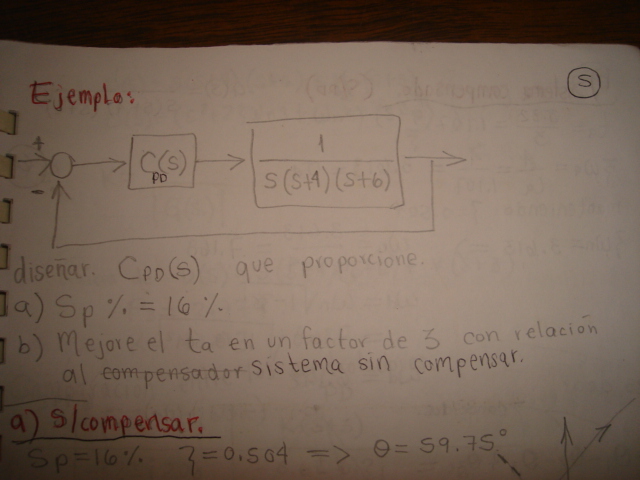 S
Ejemplo:
+
-
C_PD(s)
1
s(s+4)(s+6)
diseñar. C_PD(s) que proporcione.
a) Sp % = 16 %
b) Mejore el ta en un factor de 3 con relación
al compensador sistema sin compensar.
a) S/compensar.
Sp = 16 % ζ = 0.504 => θ = 59.75°